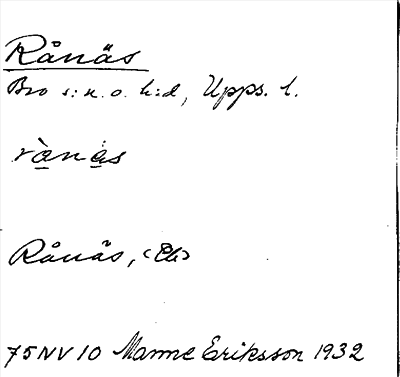 Rånäs
Bro s:n o. h:d, Upps. l.
rànas
Rånäs, <Eb>
75NV10 Manne Eriksson 1932